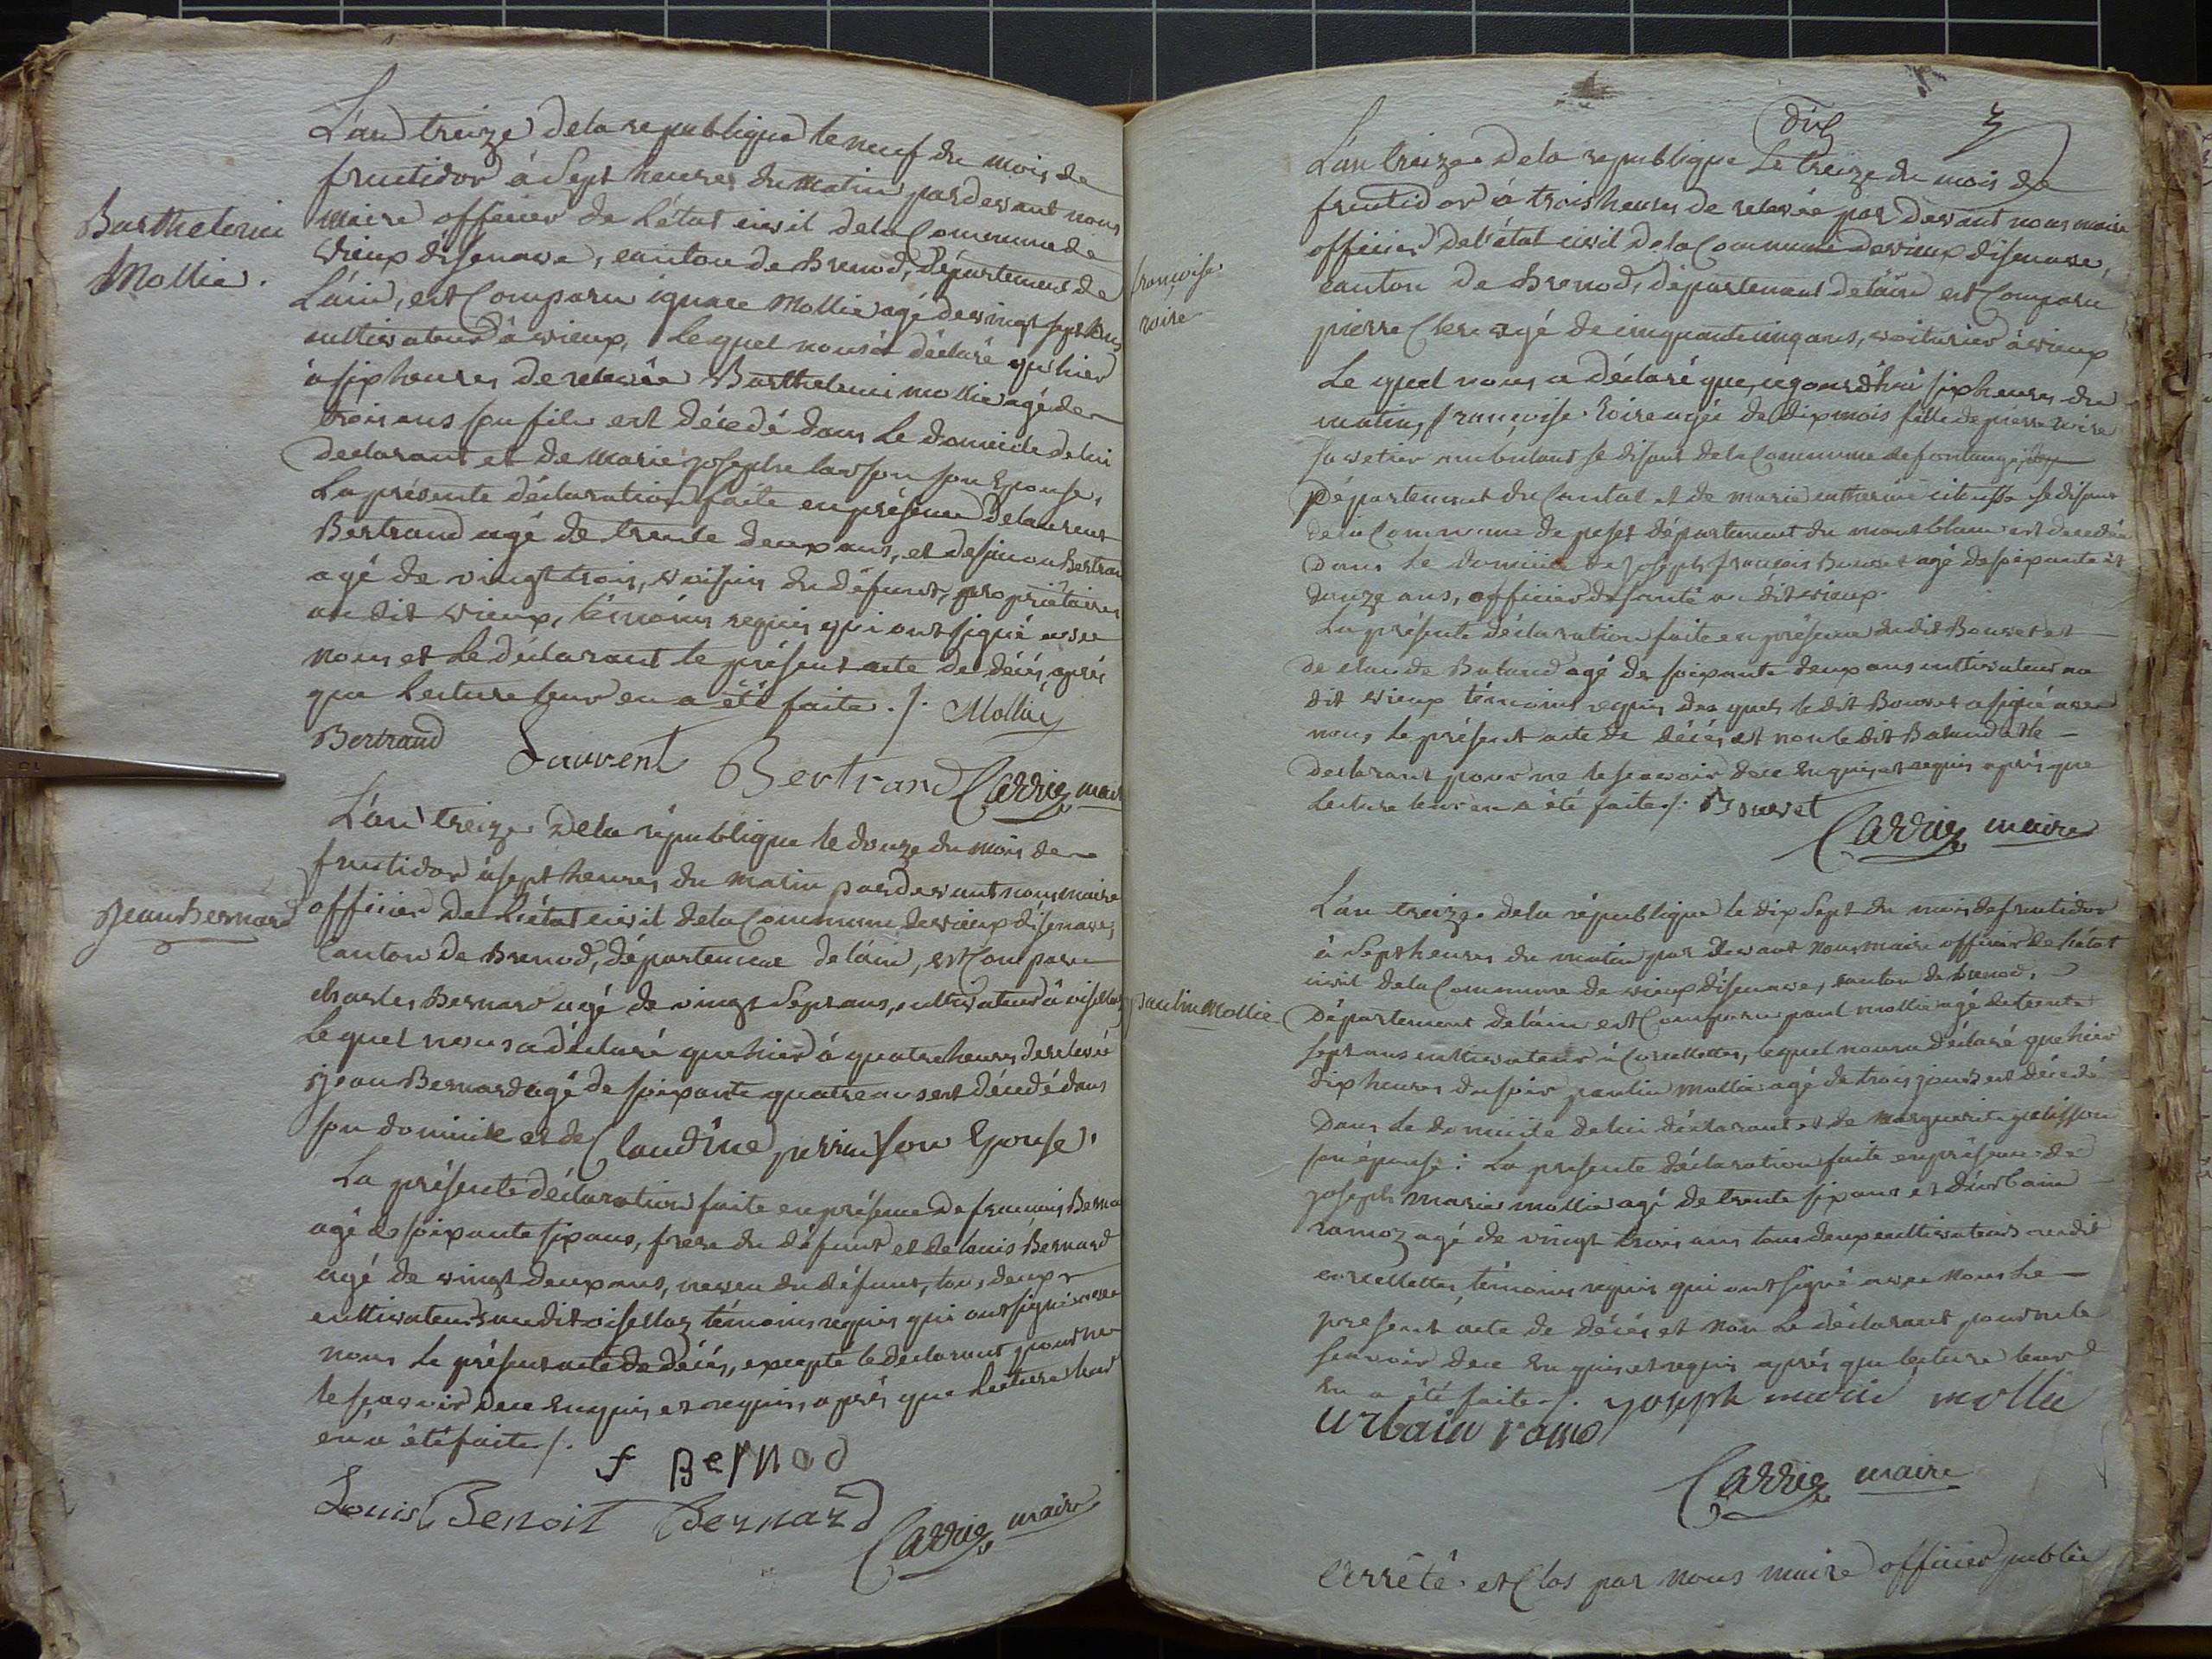 L'an treize dela republique le neuf du mois de
fructidor à Sept heures du matin pardevant nous
Barthelemi
maire officier de L'état civil dela Commune de
Mollie.
vieux disenave, canton de Brenod, département de
L'ain, est Comparu ignace Mollie agé de vingt sept ans
cultivateur à vieux, lequel nous a déclaré qu'hier
à six heures de relevée Barthelemi mollie agé de
trois ans son fils est décedé dans le domicile de lui
déclarant et de Marie josephe lawson son Epouse,
La présente déclaration faite en présence de laurent
Bertrand agé de trente deux ans, et de simon Bertrand
agé de vingt trois, voisins du défunt, propriétaires
au dit vieux, témoins requis qui ont signé avec
nous et le déclarant le présent acte de décès, après
que lecture leur en a été faite ./. Mollié
Bertrand Laurent Bertrand Carrier maire
L'an treize dela république le douze du mois de
fructidor à sept heures du matin pardevant nous maire
Jean Bernard
officier de L'état civil dela Commune de vieux disenave,
Canton de Brenod, département de l'ain, est Comparu
charles Bernard agé de vingt Sept ans, cultivateur à
lequel nous a déclaré que hier à quatre heures de relevée
jean Bernard agé de soixante quatre ans est décedé dans
son domicile et de Claudine perrin son Epouse,
La présente déclaration faite en présence de francois Bernard
agé de soixante six ans, frere du défunt et de louis Bernard
agé de vingt deux ans, neveu du défunt, tous deux
cultivateurs audit témoins requis qui ont signé avec
nous le présent acte de décès, excepté le déclarant pour ne
le sçavoir de ce Enquis et requis, après que lecture leur
en a été faite ./.
f Bernod
Louis Benoit Bernard Carrier maire
dix
L'an treize dela republique Le treize du mois de
fructidor à trois heures de relevée par devant nous maire
officier del'état civil dela Commune de vieux disenave,
françoise
canton de Brenod, département de l'ain est Comparu
roire
pierre Clerc agé de cinquante cinq ans, voiturier à vieux
Le quel nous a déclaré que, cejourd'hui six heures du
matin, françoise Roire agée de dix mois fille de pierre roire
savetier ambulant se disant dela Commune de fontange
département du Cantal et de marie catherine se disant
dela Commune de peset département du mont blanc est decedée
dans le domicile de joseph françois Bouvet agé de soixante et
douze ans, officier de santé au dit vieux.
La présente déclaration faite en présence dudit Bouvet et
de claude Baland agé de soixante deux ans cultivateur au
dit vieux témoins requis des quels le dit Bouvet a signé avec
nous le présent acte de décès, et non le dit Baland et le
déclarant pour ne le sçavoir de ce Enquis et requis après que
lecture leur en a été faite ./. Bouvet
Carrier maire
L'an treize dela république le dix Sept du mois de fructidor
à Sept heures du matin par devant nous maire officier de l'état
civil dela Commune de vieux disenave, canton de Brenod,
paulin Mollie
département de l'ain est Comparu paul mollie agé de trente
sept ans cultivateur à Corcellettes, lequel nous a déclaré que hier
dix heures du soir paulin mollie agé de trois jours est décedé
dans le domicile de lui déclarant et de Marguerite
son épouse: La presente déclaration faite en présence de
joseph marie mollie agé de trente six ans et d'urbain
ramoz agé de vingt trois ans tous deux cultivateurs audit
corcellettes, témoins requis qui ont signé avec nous le
présent acte de décès et non le déclarant pour ne le
sçavoir de ce Enquis et requis après que lecture leur
en a été faite ./. joseph marie mollie
urbain ramo
Carrier maire
Arrêté et Clos par nous maire officier public